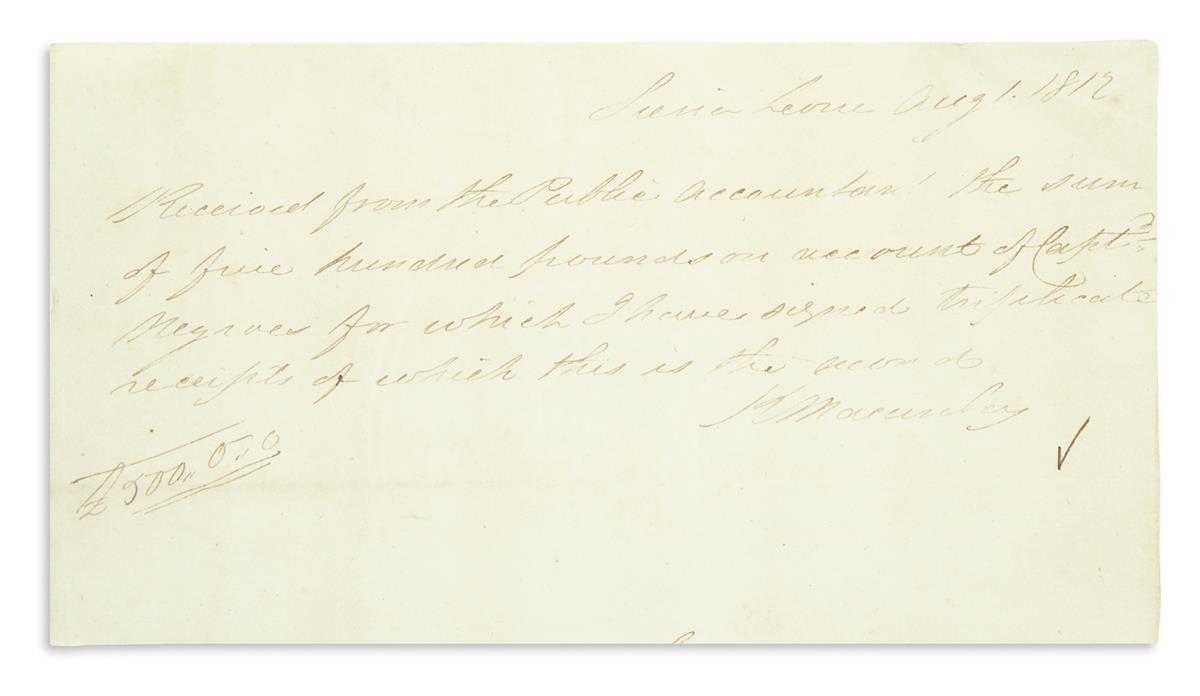 Sierra Leone Aug 1. 1812
Received from the Public Accountant the sum
of five hundred pounds on account of Captd
Negroes for which I have signed triplicate
receipts of which this is the second
K Macaulay
£500.. 0.. 0